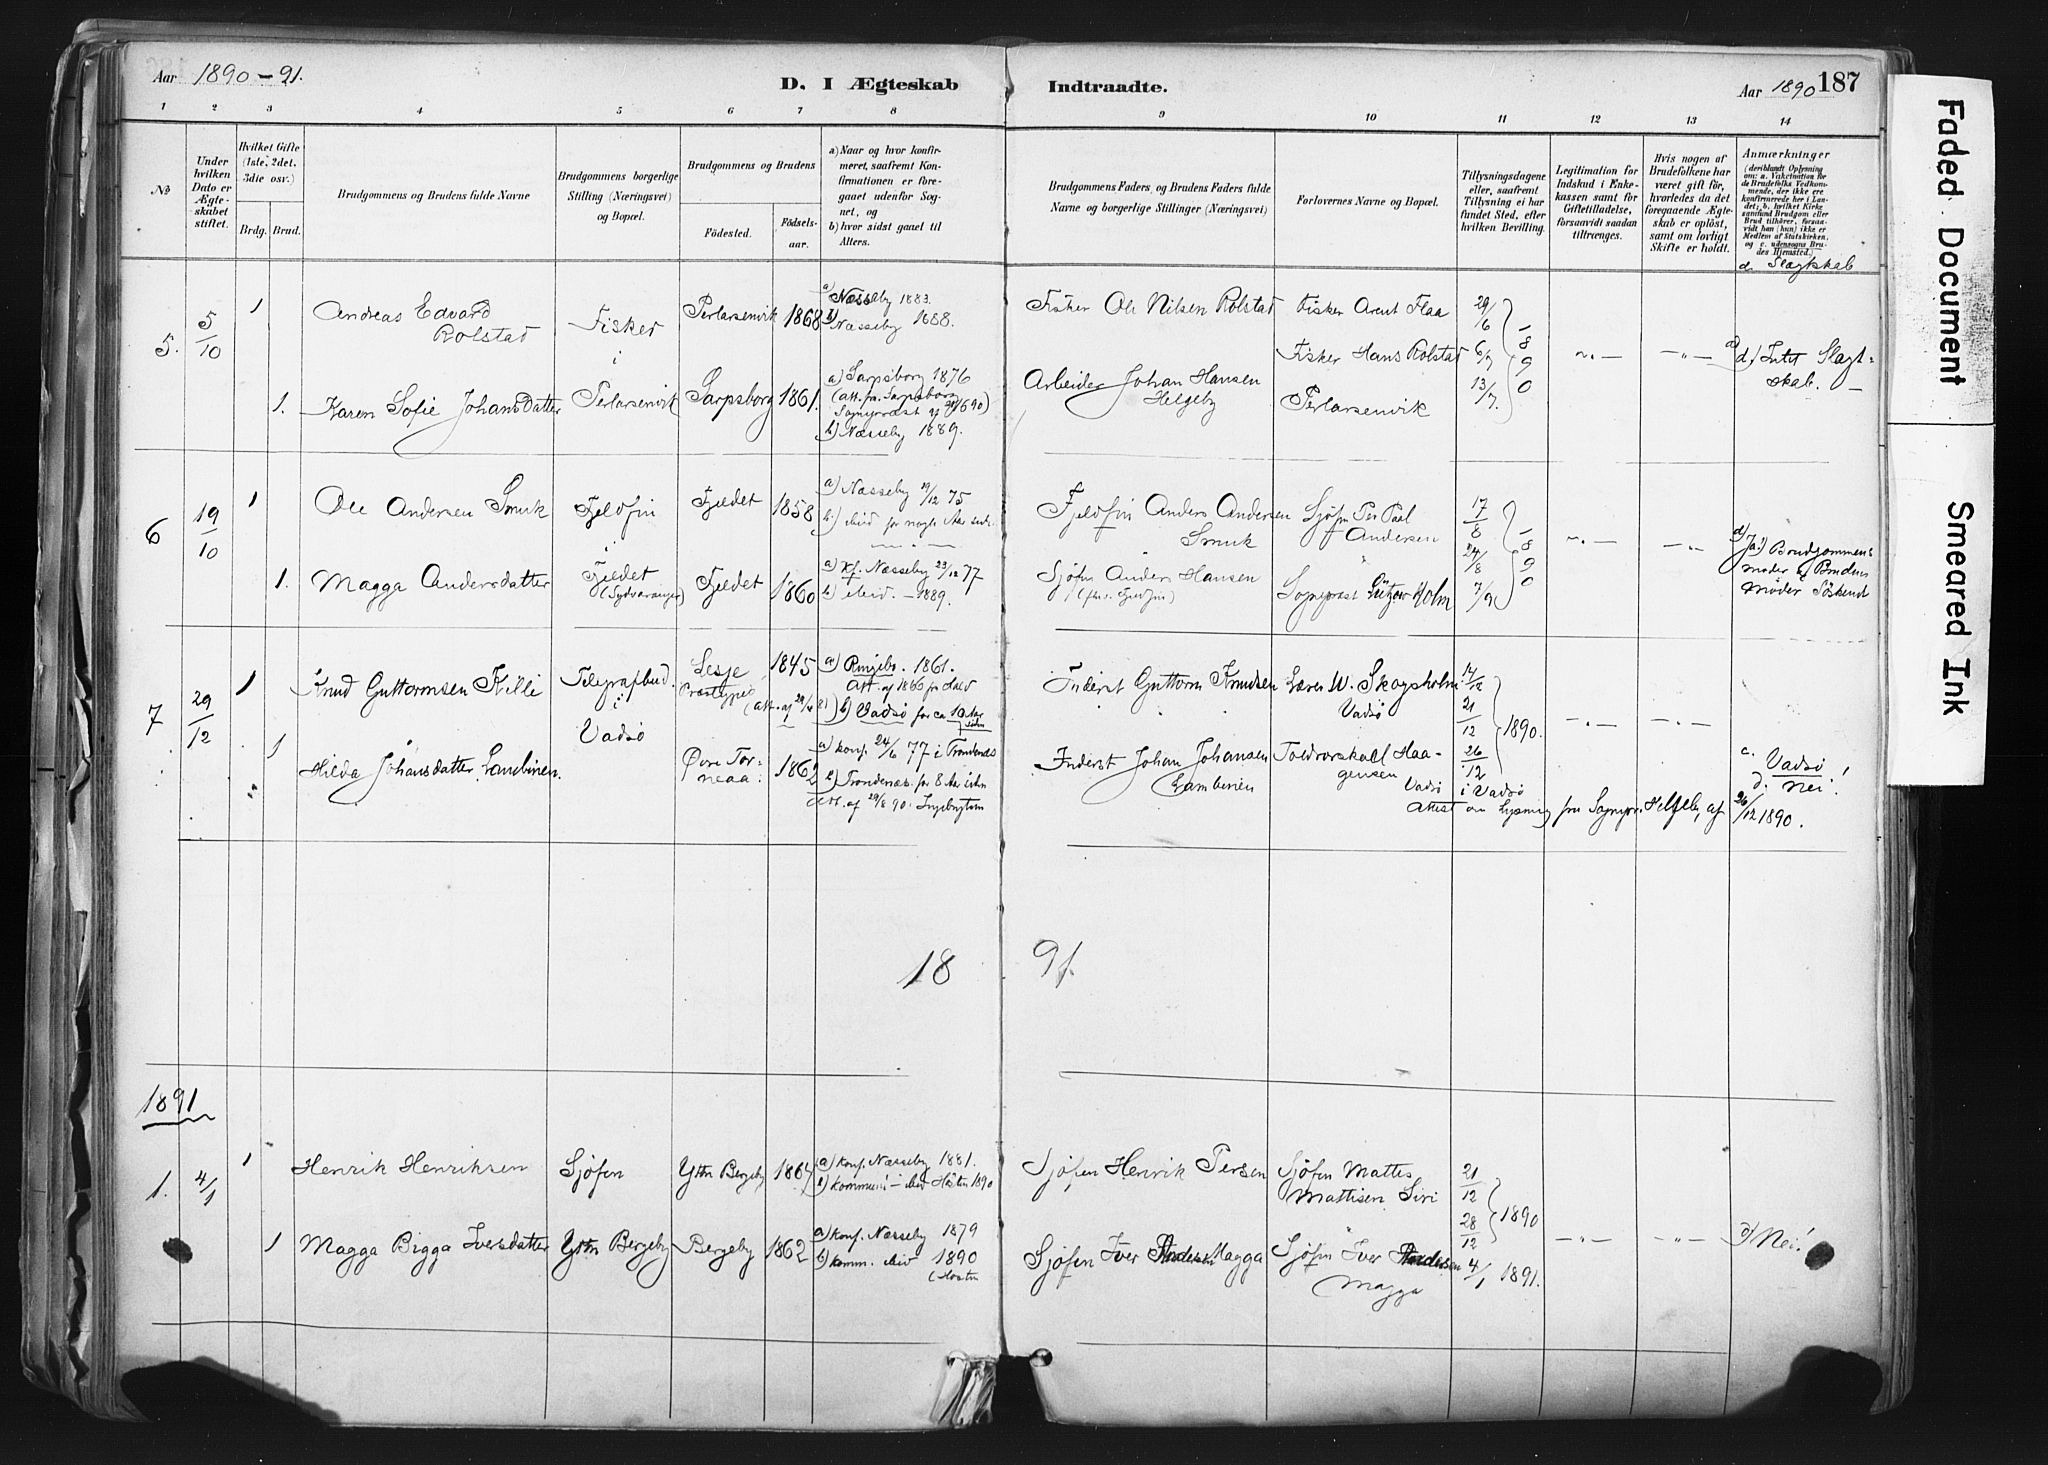 Aar 1890-91.
D. I Ægteskab
Indtraadte.
Aar 1890
187
1 2 3 4 5 6 7 8
9 10 11 12 13 14
No
Under hvilken Dato er Ægteskabet stiftet.
Hvilket Gifte (1ste, 2det, 3die osv.)
Brdg. Brud.
Brudgommens og Brudens fulde Navne
Brudgommens borgerlige Stilling (Næringsvei) og Bopæl.
Brudgommens og Brudens
Födested.
Födselsaar.
a) Naar og hvor konfirmeret, saafremt Konfirmationen er foregaaet udenfor Sognet, og
b) hvor sidst gaaet til Alters.
Brudgommens Faders og Brudens Faders fulde Navne og borgerlige Stillinger (Næringsvei)
Forlovernes Navne og Bopæl.
Tillysningsdagene eller, saafremt Tillysning ei har fundet Sted, efter hvilken Bevilling.
Legitimation for Indskud i Enkekassen samt for Giftetilladelse, forsaavidt saadan tiltrænges.
Hvis nogen af Brudefolkene har været gift för, hvorledes da det foregaaende Ægteskab er oplöst, samt om lovligt Skifte er holdt.
Anmærkninger
(deriblandt Oplysning om: a. Vakcination for de Brudefolks Vedkommende, der ikke ere konfirmerede her i Landet; b. hvilket Kirkesamfund Brudgom eller Brud tilhörer, forsaavidt han (hun) ikke er Medlem af Statskirken, og c. udensogns Brudes Hjemsted.)
d. Slægtskab
5.
5/10
1
Andreas Edvard
Rolstad
Fisker
i
Perlarsenvik
Perlarsenvik
1868
a) Næsseby 1883.
b) Næsseby 1888.
Fisker Ole Nilsen Rolstad
Fisker Arent Flaa
29/6
6/7
13/7.
1890
Fisker Hans Rolstad
Perlarsenvik
d.) Intet Slægtskab.
1.
Karen Sofie Johansdatter
Sarpsborg
1861.
a) Sarpsborg 1876
(att. fra Sarpsborg
b) Næsseby 1889.
Arbeider Johan Hansen
Helgeby
6
19/10
1
Ole Andersen Smuk
Fjeldfin
i
Fjeldet
(Sydvaranger)
Fjeldet
1858
a) Næsseby 19/12 75
b.) ibid for nogle Aar
Fjeldfin Anders Andersen
Smuk
Sjøfin Per Paul
Andersen
17/8
24/8
7/9
1890
d.) Ja:) Brudgommens
moder og Brudens
Møder Søskend
1.
Magga Andersdatter
Fjeldet
1860
a) Kf. Næsseby 23/12 77
b) ibid. - 1889.
Sjøfin Anders Hansen
(før Fjeldfin)
Sognepræst Lützow Holm
7
29/12
1
Knud Guttormsen Killi
Telegrafbud.
i
Vadsø
Lesje
Præstegjed
1845
a) Ringebo. 1861.
Att. af 1860 fra
b) Vadsø for ca 10 Aar
siden
Inderst Guttorm Knudsen
Lærer W. Skogsholm
Vadsø
14/12
21/12
26/12
1890.
c. Vadsø
d. nei!
1
Hilda Johansdatter Lambinen.
Øvre Torneaa.
1862
a) konf. 24/6 77 i Trondenæs
b) Trondenæs for 8 Aar siden
att. af 29/8 90.
Inderst Johan Johansen
Lambinen
Toldvorskall Haagensen
Vadsø i Vadsø
Attest om Lysning fra Sognepr. Helgeby, af 26/12 1890.
18 91.
1891
1.
4/1
1
Henrik Henriksen
Sjøfin
Ytre Bergeby
1864
a) konf. Næsseby 1881.
b) kommuni- ibid Høsten 1890
Sjøfin Henrik Persen
Sjøfin Mattes
Mattisen Siri
21/12
28/12
1890
4/1 1891.
1
Magga Bigga Iversdatter
Ytre Bergeby
Bergeby
1862
a) konf. Næsseby 1879
b) komm. ibid 1890
(Høsten
Sjøfin Iver Magga
Sjøfin Iver Andersen
Magga
d) Nei!
Faded Document
Smeared Ink